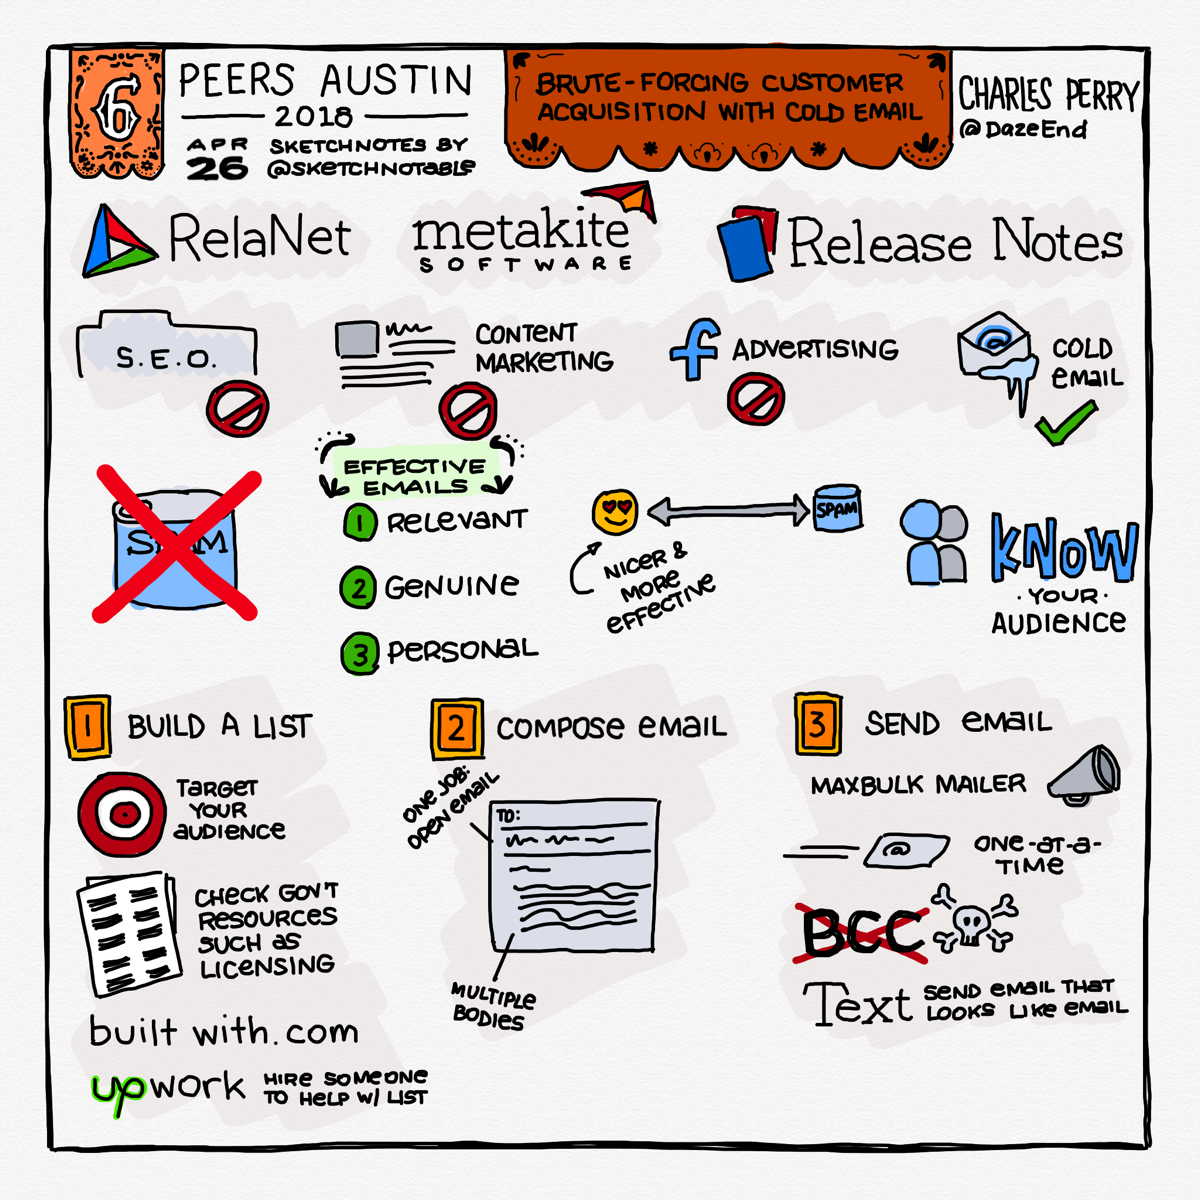 6
PEERS AUSTIN
2018
APR
26
SKETCHNOTES BY
@SKETCHNOTABLE
BRUTE-FORCING CUSTOMER
ACQUISITION WITH COLD EMAIL
CHARLES PERRY
@DazeEnd
RelaNet
metakite
SOFTWARE
Release Notes
S.E.O.
CONTENT
MARKETING
f ADVERTISING
@
COLD
EMAIL
SPAM
EFFECTIVE
EMAILS
1 RELEVANT
2 GENUINE
3 PERSONAL
SPAM
NICER &
MORE
EFFECTIVE
KNOW
·YOUR·
AUDIENCE
1 BUILD A LIST
TARGET
YOUR
AUDIENCE
CHECK GOV'T
RESOURCES
SUCH AS
LICENSING
built with.com
upwork
HIRE SOMEONE
TO HELP W/ LIST
2 COMPOSE EMAIL
ONE JOB:
OPEN EMAIL
TO:
MULTIPLE
BODIES
3 SEND EMAIL
MAXBULK MAILER
@
ONE-AT-A-
TIME
BCC
Text
SEND EMAIL THAT
LOOKS LIKE EMAIL